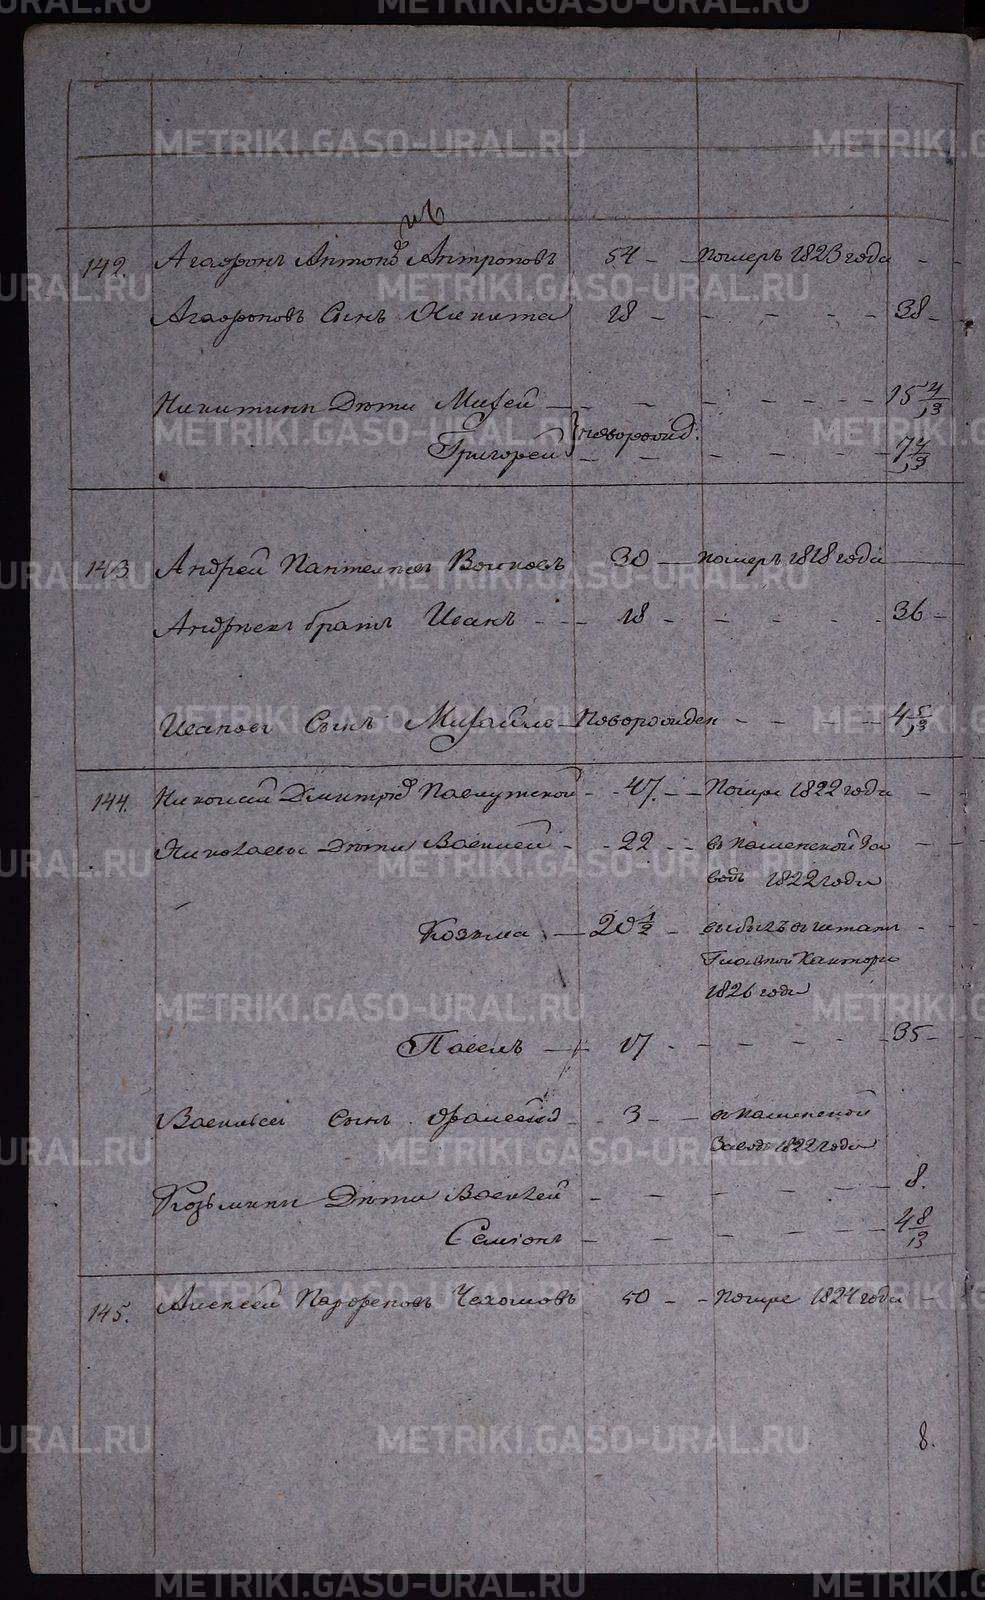 142. Агафонъ Антоно Антроповъ 54 - - померъ 1823 года - -
Агафоновъ Сынъ Никита 18 - - - - - 38 -
Никитины Дѣти Михей - - - - - - 15 4/13
Григорей } новорожд: - - - - - 7 4/13
143 Андрей Пантелѣевъ Волковъ 30 — померъ 1818 года
Андрѣевъ братъ Иванъ - - - 18 - - - - - 36 -
Ивановъ Сынъ Михайло - новорожден - - - - 4 5/13
144. Николай Дмитріе Павлутской - 47. - - Помре 1822 года - -
Николаевы Дѣти Василей - - 22 - - въ каменской за - -
водъ 1822 года
Козьма - 20 1/2 - выбылъ въ штатъ - -
Главной Канторы
1826 года
Павелъ - 17 - - - - - 35 -
Васильевъ сынъ - 3 - - въ каменской
Заводъ 1822 года
Козьмины Дѣти Василей - - - - - - 8.
Семіонъ - - - - - - 4 8/13
145. Алексей Парфеновъ 50 - - помре 1827 года -
8.
METRIKI.GASO-URAL.RU